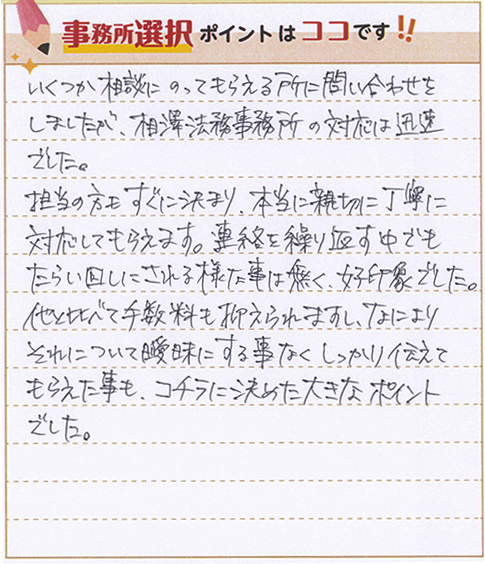 事務所選択ポイントはココです!!
いくつか相談にのってもらえる所に問い合わせを
しましたが、相澤法務事務所の対応は迅速
でした。
担当の方もすぐに決まり、本当に親切に丁寧に
対応してもらえます。連絡を繰り返す中でも
たらい回しにされる様な事は無く、好印象でした。
他と比べて手数料も抑えられますし、なにより
それについて曖昧にする事なくしっかり伝えて
もらえた事も、コチラに決めた大きなポイント
でした。